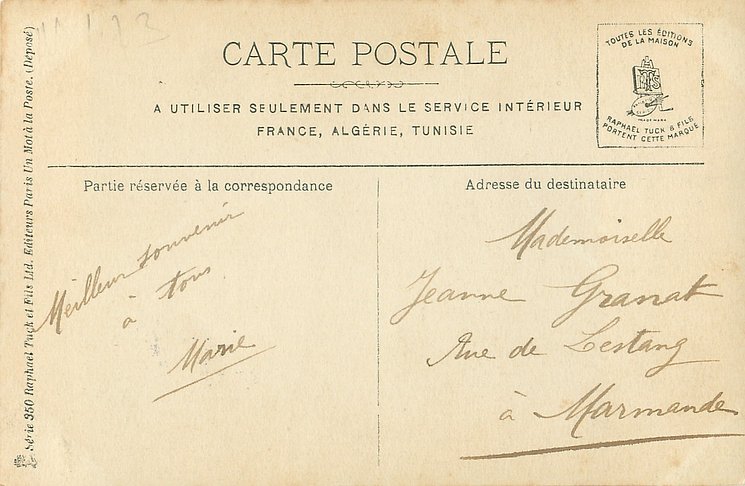 CARTE POSTALE
A UTILISER SEULEMENT DANS LE SERVICE INTÉRIEUR
FRANCE, ALGÉRIE, TUNISIE
TOUTES LES ÉDITIONS
DE LA MAISON
RAPHAEL TUCK & FILS
PORTENT CETTE MARQUE
Partie réservée à la correspondance
Meilleur souvenir
à tous
Marie
Adresse du destinataire
Mademoiselle
Jeanne Granat
Rue de Lestang
à Marmande
Série 950 Raphael Tuck et Fils Ltd. Editeurs Paris Un Mot à la Poste. (Déposé)